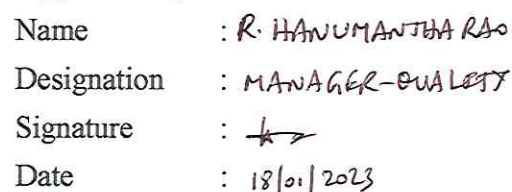 Name : R. HANUMANTHA RAO
Designation : MANAGER-QUALITY
Signature :
Date : 18/01/2023